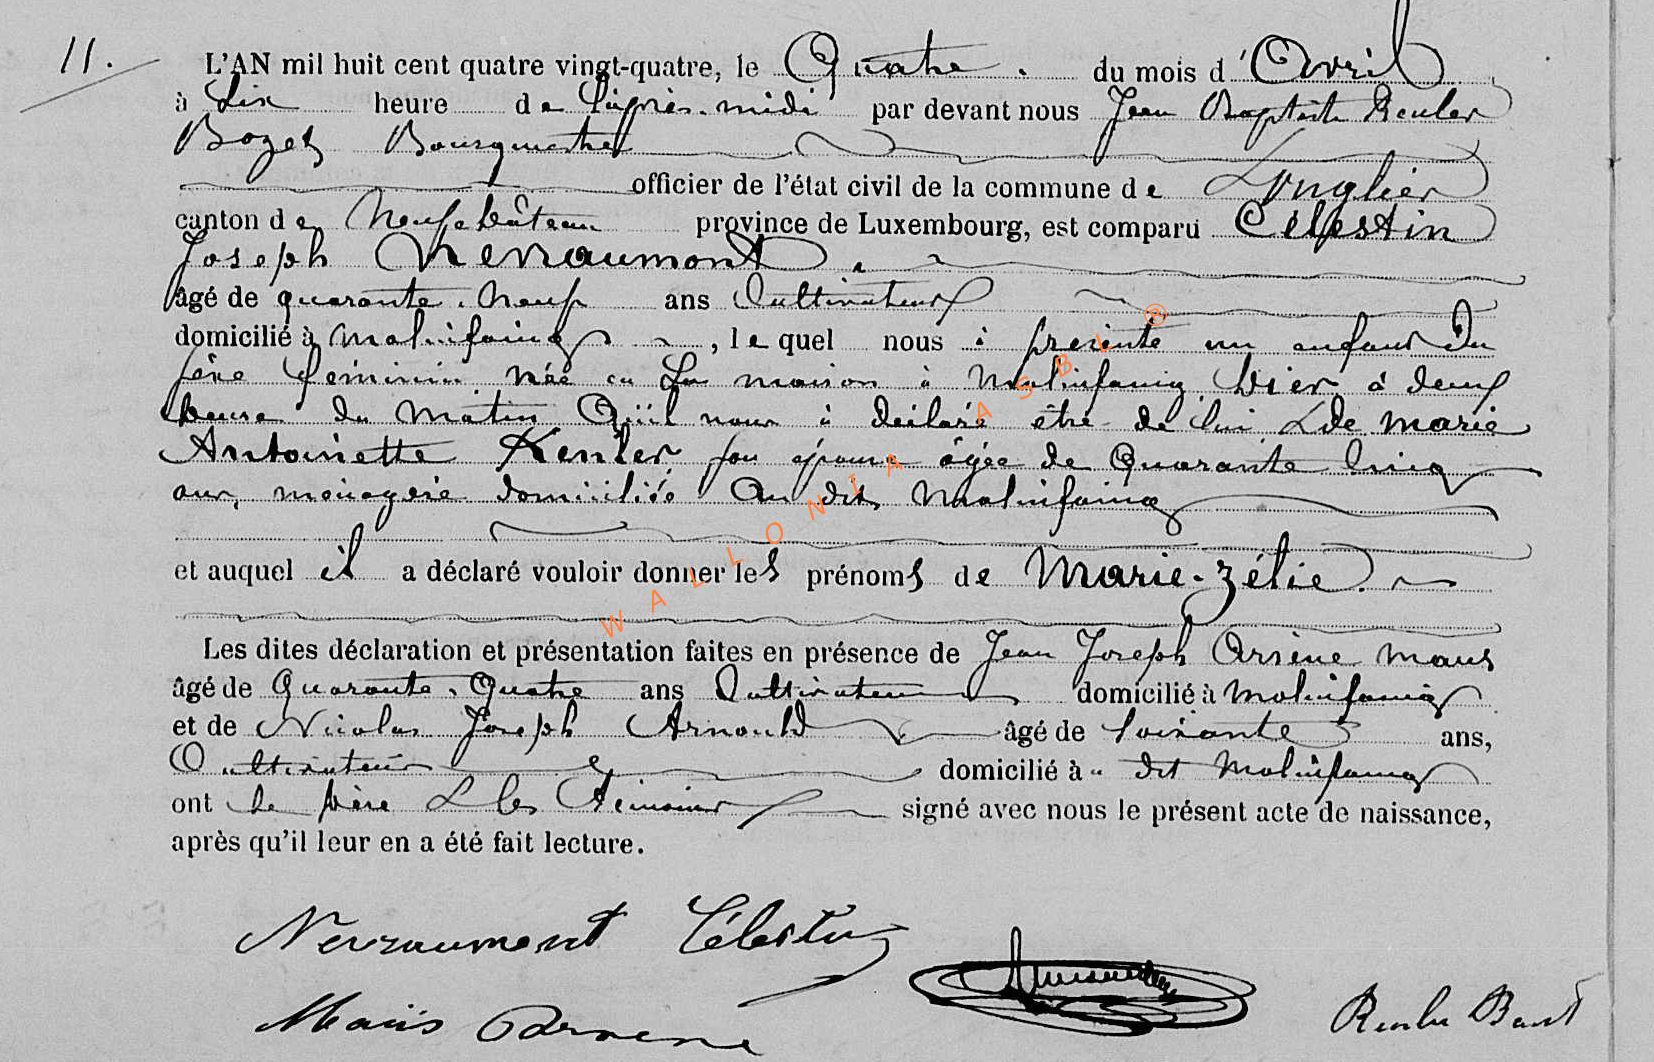 11.
L'AN mil huit cent quatre vingt-quatre, le Quatre du mois d'Avril
à Six heure de l'après-midi par devant nous Jean Baptiste Reuler
Bozet Bourgmestre
officier de l'état civil de la commune de Longlier
canton de Neufchâteau province de Luxembourg, est comparu Célestin
Joseph Nevraumont
âgé de quarante-neuf ans Cultivateur
domicilié à Molinfaing, lequel nous à présenté un enfant du
sexe féminin née en Sa maison à Molinfaing hier à deux
heure du Matin Qu'il nous à déclaré être de lui & de Marie
Antoinette Kenler son épouse âgée de Quarante Cinq
ans, ménagère domiciliée au dit Molinfaing
et auquel il a déclaré vouloir donner les prénoms de Marie-Zélie.
Les dites déclaration et présentation faites en présence de Jean Joseph Arsène Maus
âgé de Quarante-Quatre ans Cultivateur domicilié à Molinfaing
et de Nicolas Joseph Arnould âgé de Soixante ans,
Cultivateur domicilié à dit Molinfaing
ont le père & les témoins signé avec nous le présent acte de naissance,
après qu'il leur en a été fait lecture.
Nevraumont Célestin
Maus Arsene
WALLONIA ASBL ®